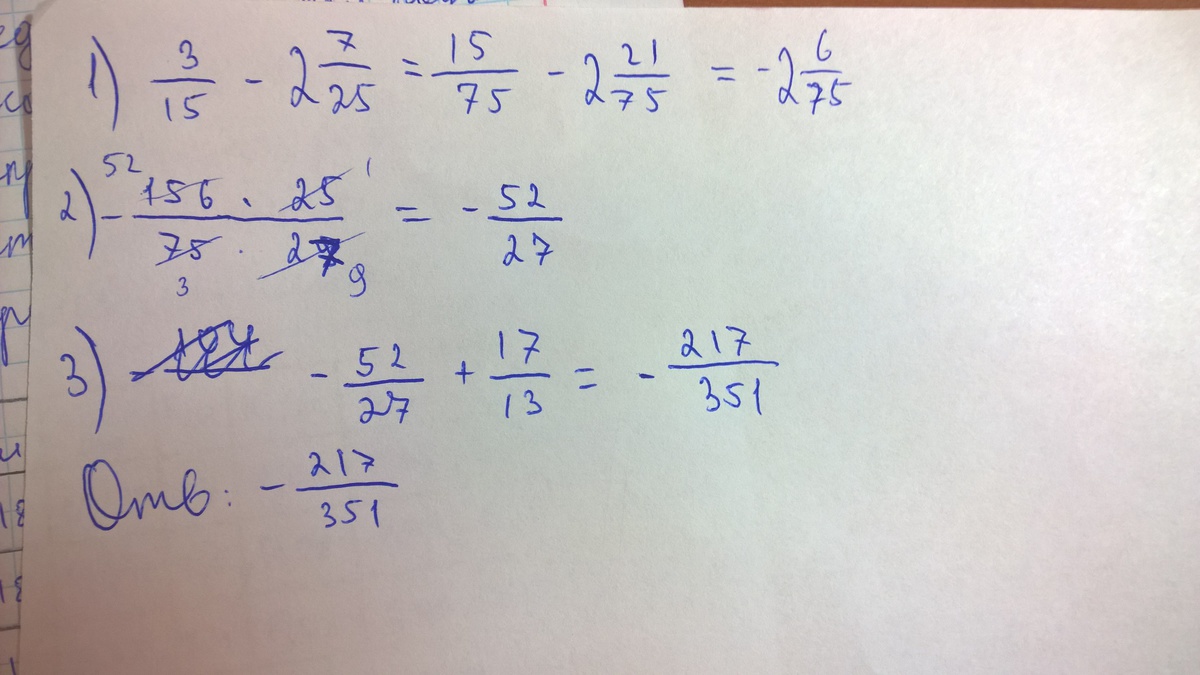 1) 3/15 - 2 7/25 = 15/75 - 2 21/75 = -2 6/75
2) - 52 156 · 25 1 / 75 3 · 27 9 = - 52/27
3) - 52/27 + 17/13 = - 217/351
Отв: - 217/351